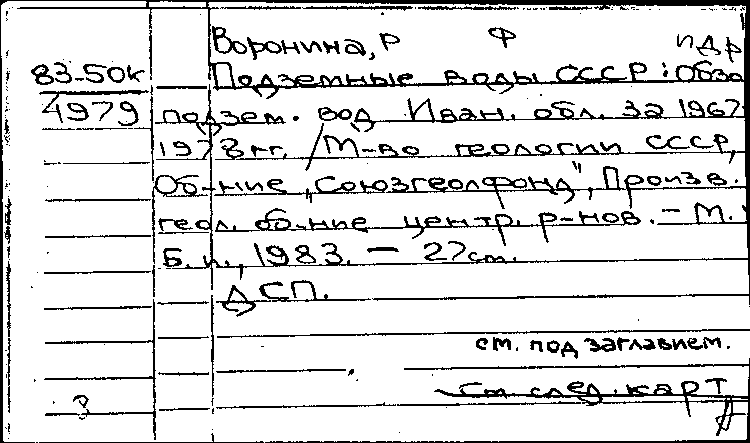 Воронина, Р Ф и др
83-50к Подземные воды СССР: Обзо
4979 подзем. вод Иван. обл. за 1967
1978 гг. / М-во геологии СССР,
Об-ние „Союзгеолфонд", Произв.
геол. об-ние центр. р-нов. - М.
Б. и., 1983. - 27 см.
ДСП.
см. под заглавием.
См след. карт
3